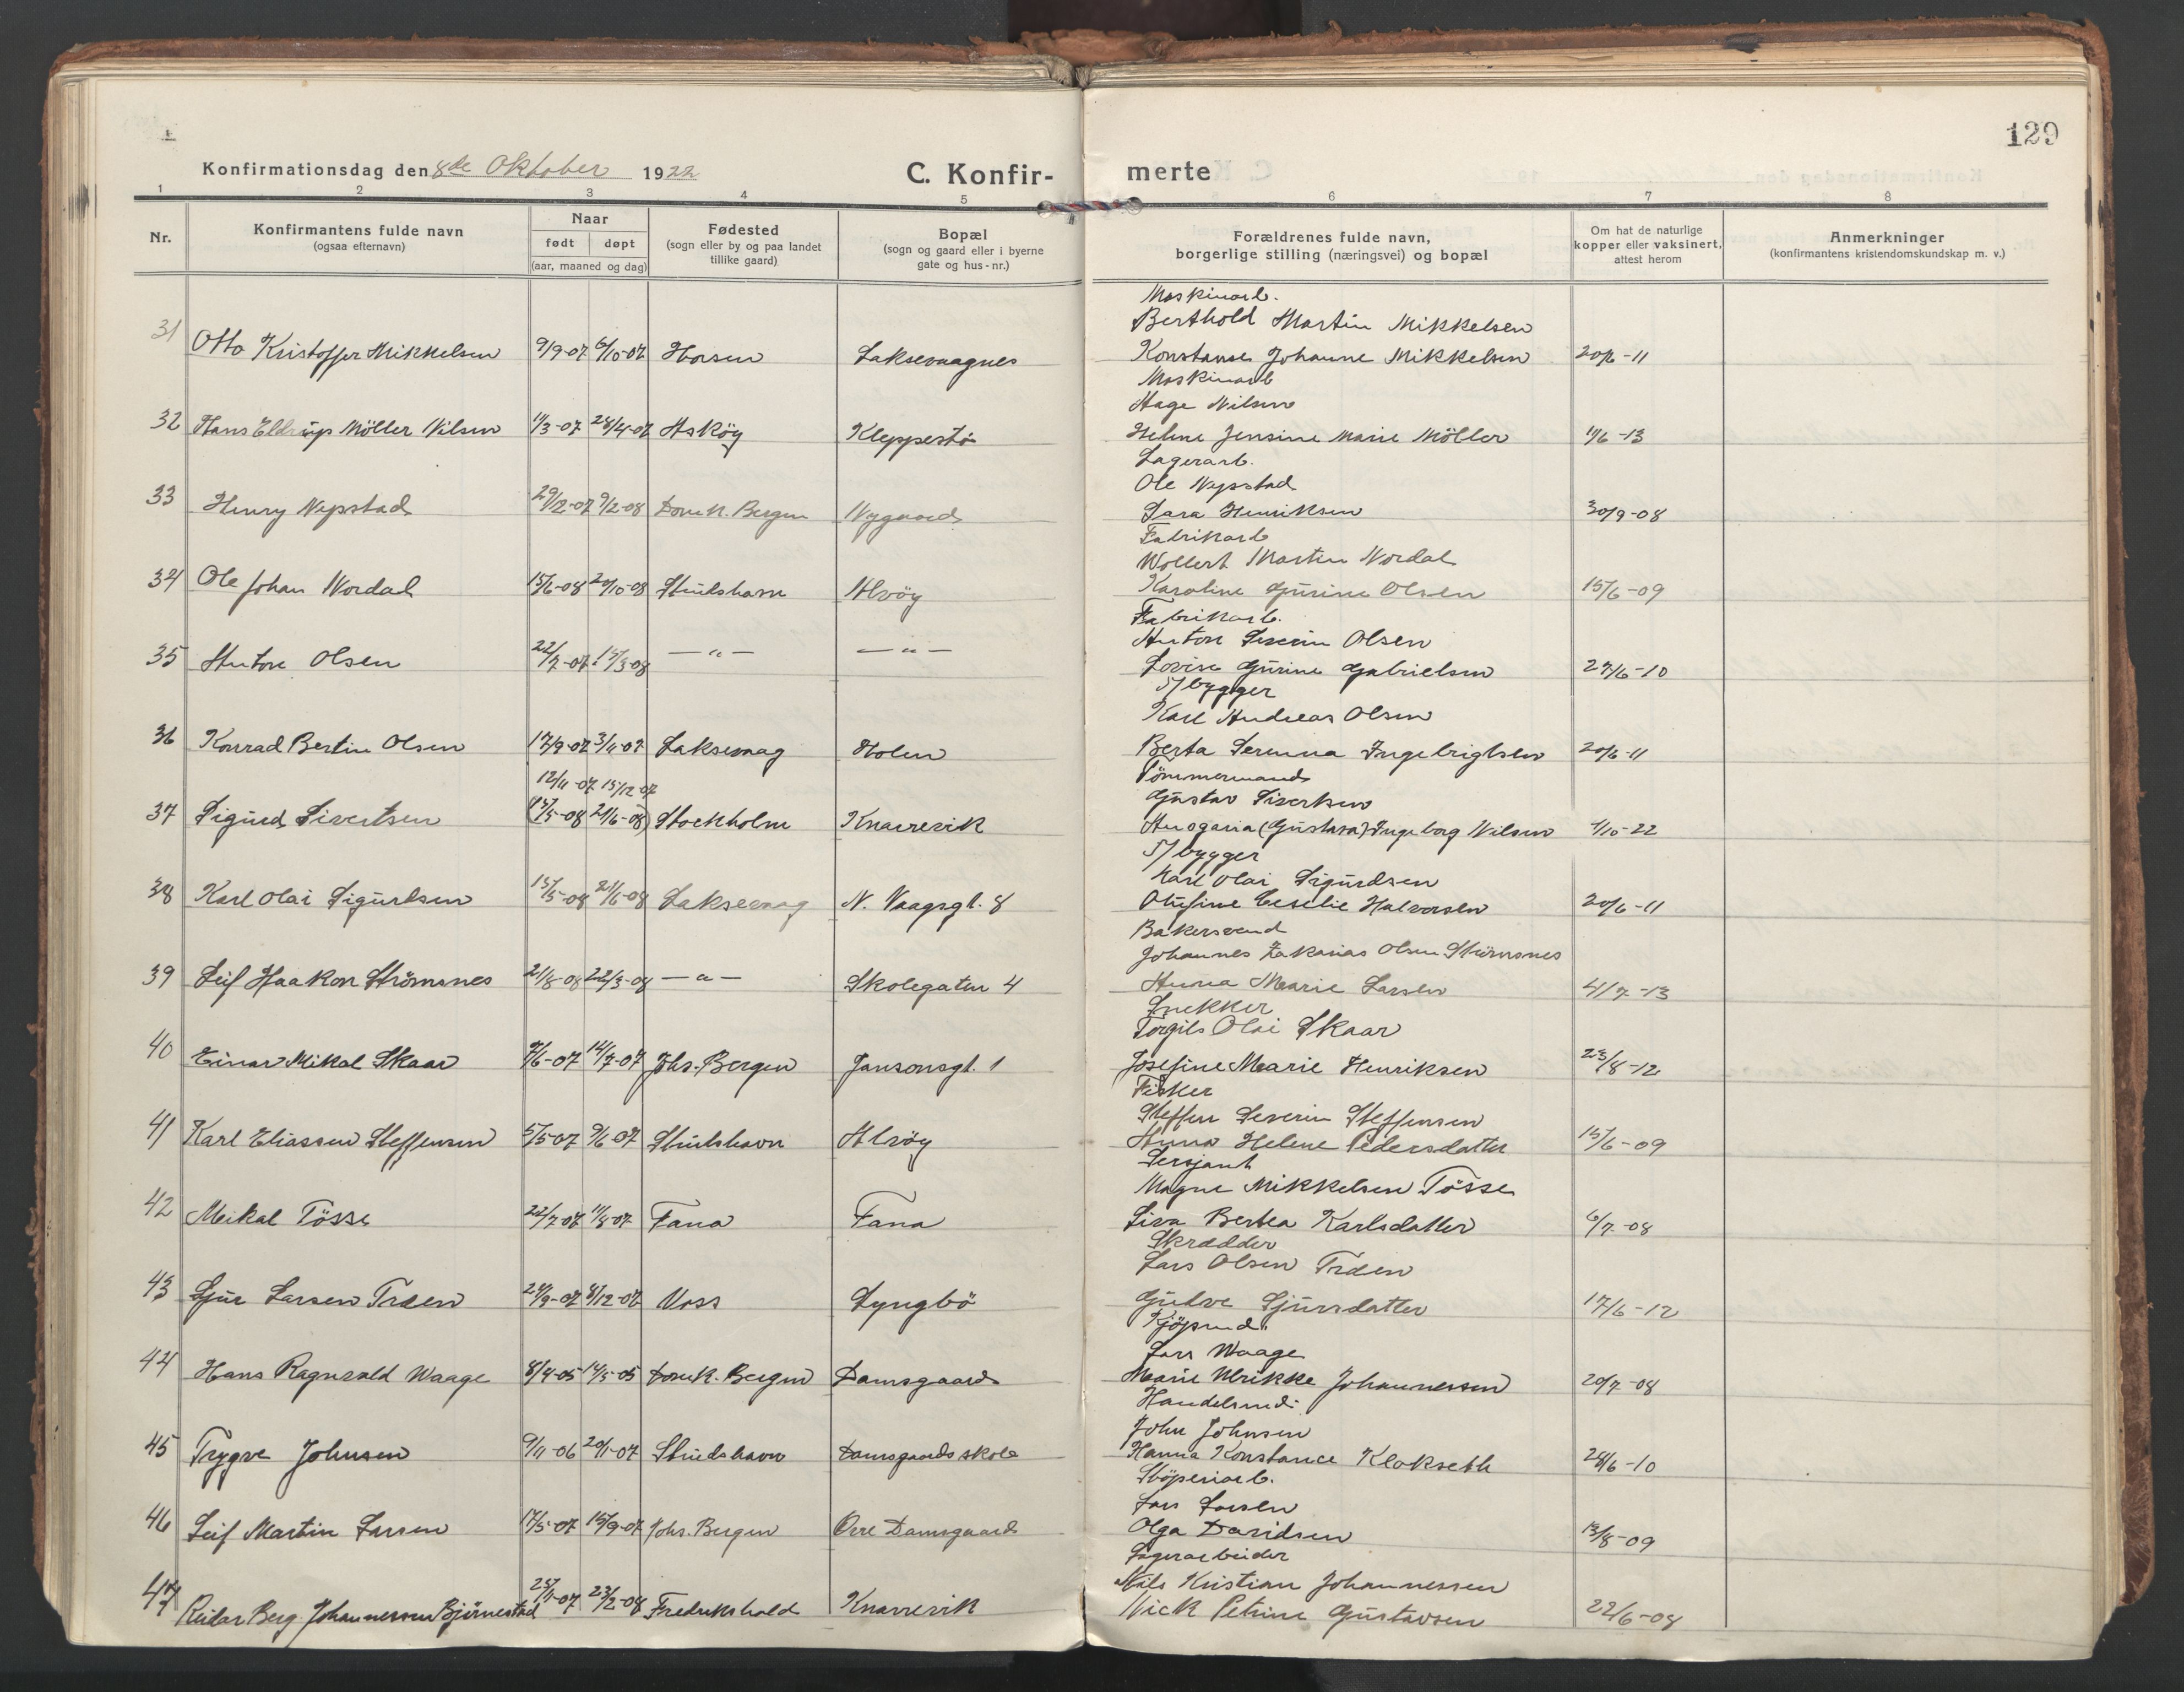 129
Konfirmationsdag den 8de Oktober 1922
C. Konfirmerte
1 2 3 4 5 6 7 8
Nr.
Konfirmantens fulde navn
(ogsaa efternavn)
Naar
født døpt
(aar, maaned og dag)
Fødested
(sogn eller by og paa landet
tillike gaard)
Bopæl
(sogn og gaard eller i byerne
gate og hus-nr.)
Forældrenes fulde navn,
borgerlige stilling (næringsvei) og bopæl
Om hat de naturlige
kopper eller vaksinert,
attest herom
Anmerkninger
(konfirmantens kristendomskundskap m. v.)
Maskinarb.
Berthold Martin Mikkelsen
31 Otto Kristoffer Mikkelsen 9/9-07 6/10-07 Laksevaagnes Konstanse Johanne Mikkelsen 20/6-11
Maskinarb
Aage Nilsen
32 Hans Eldrup Möller Nilsen 11/3-07 28/4-07 Askøy Kleppestø Helene Jensine Marie Möller 11/6-13
Lagerarb.
Ole Nypstad
33 Henry Nypstad 29/12-07 9/2-08 Domk. Bergen Nygaard Sara Henriksen 30/9-08
Fabrikarb
Wollert Martin Nordal
34 Ole Johan Nordal 15/6-08 20/10-08 Struds­havn Alvöy Karoline Gurine Olsen 15/6-09
Fabrikarb.
Anton Severin Olsen
35 Anton Olsen 22/7-07 15/3-08 —"— —"— Lovise Gurine Gabrielsen 27/6-10
S/bygger
Karl Andreas Olsen
36 Konrad Bertin Olsen 17/9-07 3/11-07 Laksevaag Holen Berta Serina Ingebrigtsen 20/6-11
Tömmermand
12/11-07 15/12-07
Gustav Sivertsen
37 Sigurd Sivertsen (15/5-08 21/6-08) Stockholm Knarrevik Ansgaria (Gustava) Ingeborg Nilsen 4/10-22
S/bygger
Karl Olai Sigurdsen
38 Karl Olai Sigurdsen 15/5-08 21/6-08 Laksevaag N. Vaagsgt. 8 Olufine Cecilie Halvorsen 20/6-11
Bakersvend
Johannes Zakarias Olsen Strömsnes
39 Leif Haakon Strömsnes 22/3-08 —"— Skolegaten 4 Anna Marie Larsen 4/7-13
Snekker
Torgils Olai Skaar
40 Einar Mikal Skaar 7/6-07 14/7-07 Johs. Bergen Jansonsgt. 1 Josefine Marie Henriksen 23/8-12
Fisker
Steffen Severin Steffensen
41 Karl Eliassen Steffensen 5/5-07 9/6-07 Strudshavn Alvöy Anna Helene Pedersdatter 15/6-09
Sersjant
Magne Mikkelsen Tösse
42 Mikal Tösse 22/7-07 11/8-07 Fana Fana Siva Bertea Karlsdatter 6/7-08
Skrædder
Lars Olsen Træen
43 Sjur Larsen Træen 24/9-07 8/12-07 Voss Lyngbö Gudve Sjursdatter 17/6-12
Kjöpmd.
Lars Waage
44 Hans Ragnvald Waage 8/4-05 14/5-05 Domk. Bergen Damsgaard Marie Ulrikke Johannessen 20/7-08
Handelsmd.
John Johnsen
45 Trygve Johnsen 9/11-06 20/1-07 Strudshavn Damsgaards skole Hanna Konstance Klokseth 28/6-10
Stöperiarb.
Lars Larsen
46 Leif Martin Larsen 17/5-07 15/9-07 Johs. Bergen Övre Damsgaard Olga Davidsen 13/8-09
Lagerarbeider
Nils Kristian Johannessen
47 Reidar Berg Johannessen Björnestad 25/11-07 23/2-08 Fredrikshald Knarrevik Nick Petrine Gustavsen 22/6-08